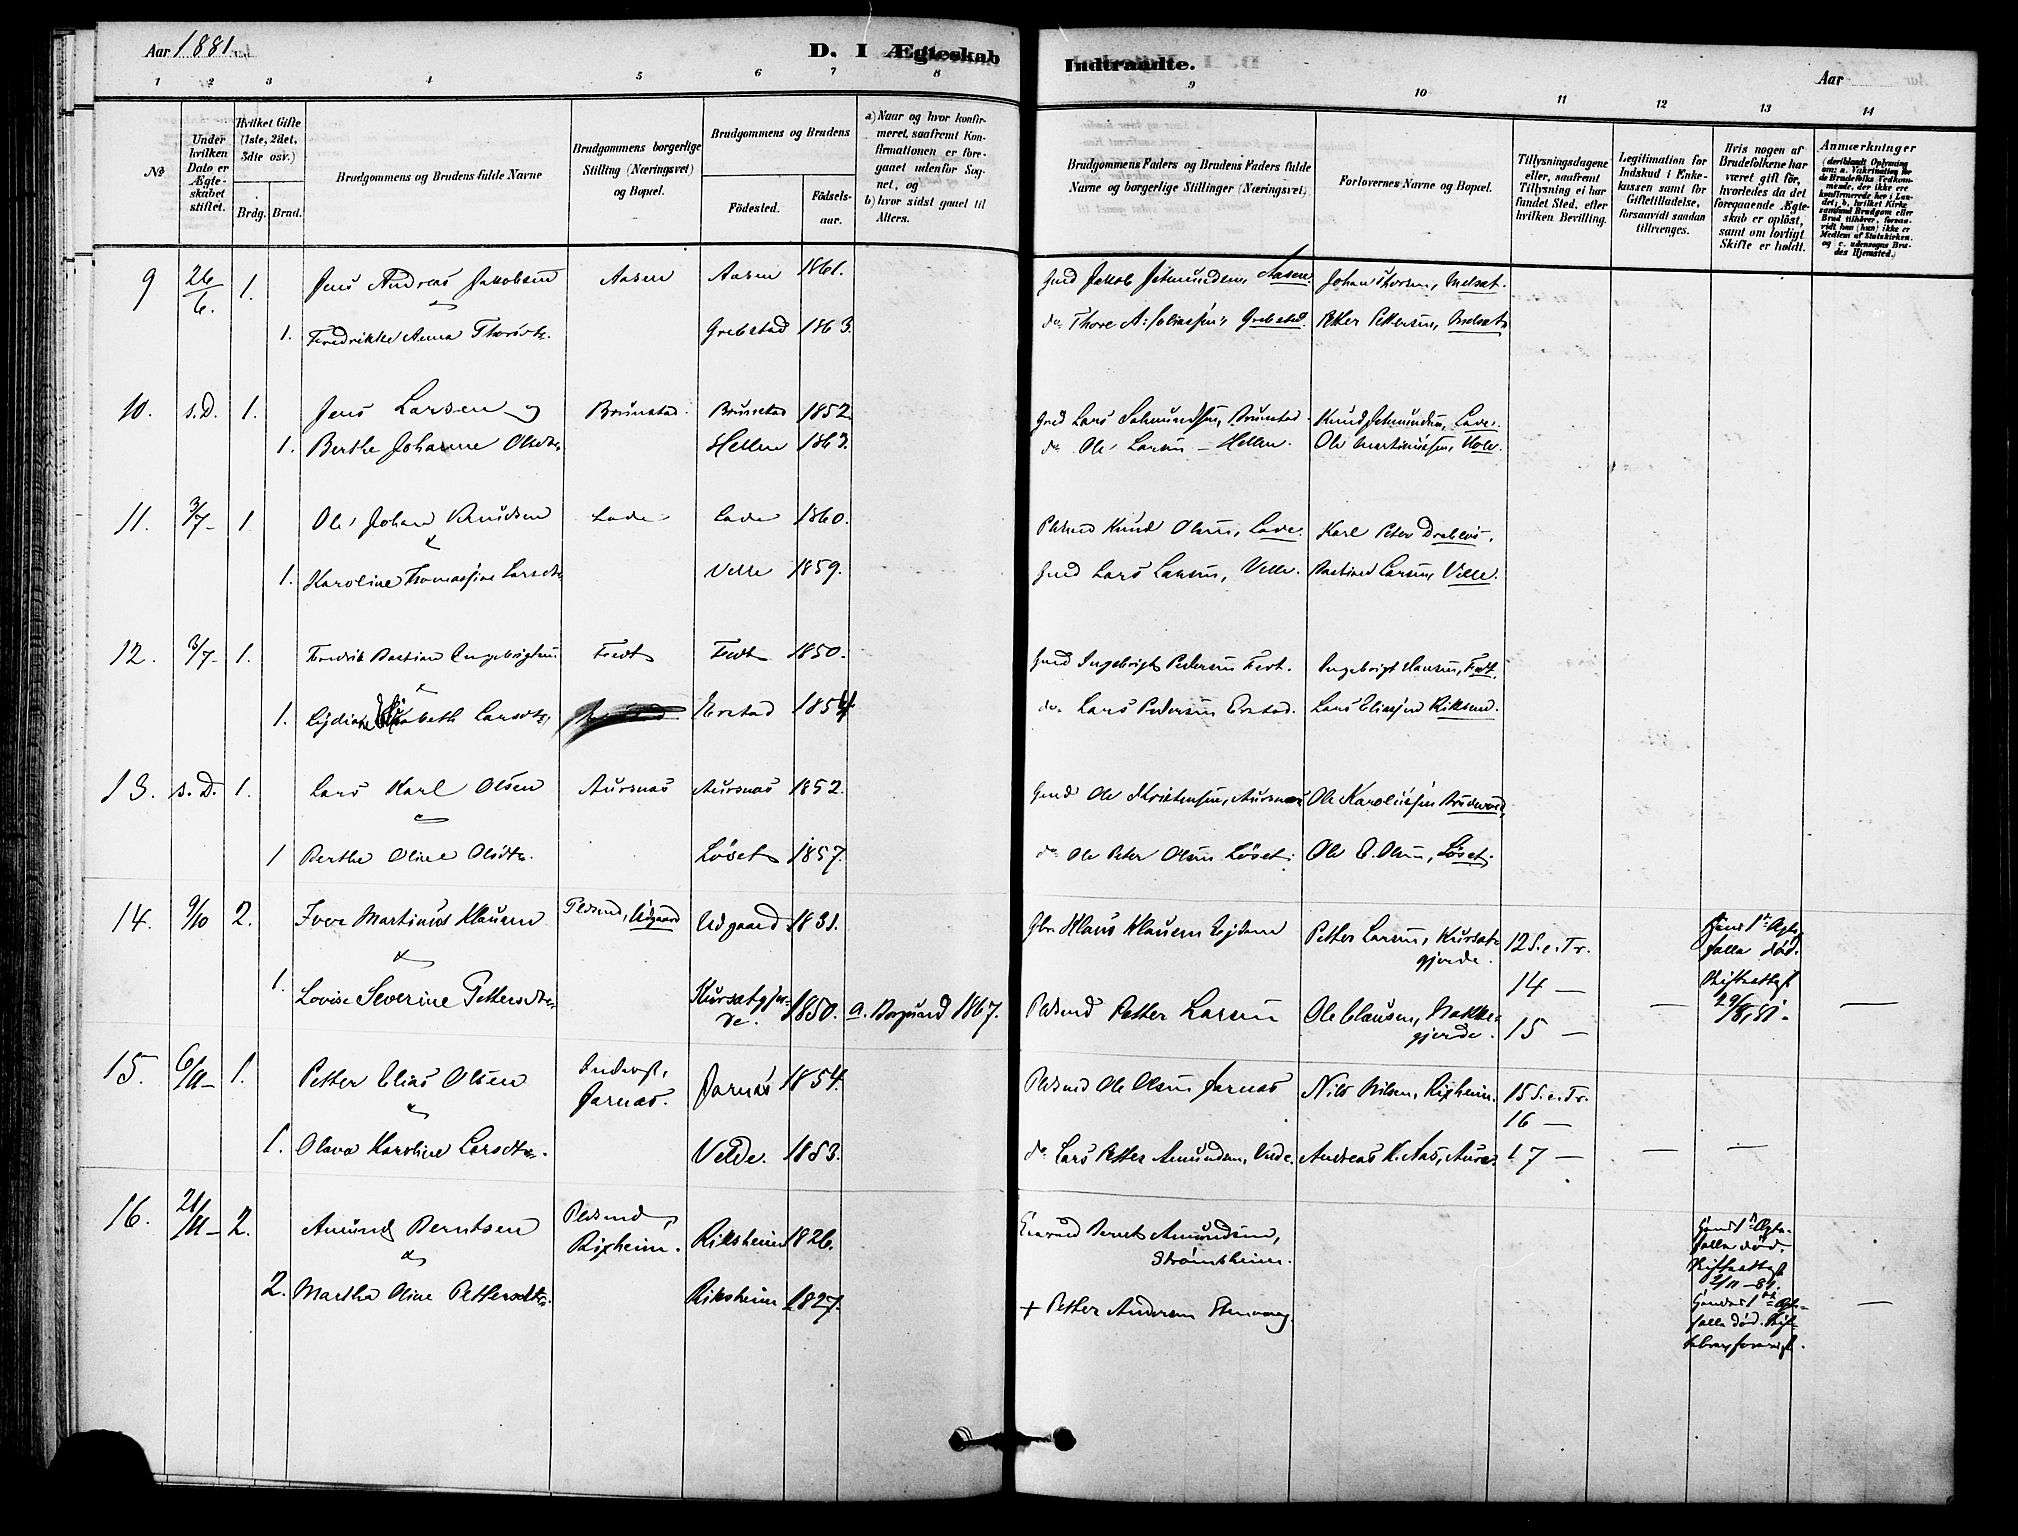 Aar 1881.
D. I Ægteskab Indtraadte.
Aar
1 2 3 4 5 6 7 8 9 10 11 12 13 14
№
Under hvilken Dato er Ægteskabet stiftet.
Hvilket Gifte (1ste, 2det, 3die osv.)
Brdg. Brud.
Brudgommens og Brudens fulde Navne
Brudgommens borgerlige Stilling (Næringsvei) og Bopæl.
Brudgommens og Brudens
Födested.
Födselsaar.
a) Naar og hvor konfirmeret, saafremt Konfirmationen er foregaaet udenfor Sognet, og
b) hvor sidst gaaet til Alters.
Brudgommens Faders og Brudens Faders fulde Navne og borgerlige Stillinger (Næringsvei)
Forlovernes Navne og Bopæl.
Tillysningsdagene eller, saafremt Tillysning ei har fundet Sted, efter hvilken Bevilling.
Legitimation for Indskud i Enkekassen samt for Giftetilladelse, forsaavidt saadan tiltrænges.
Hvis nogen af Brudefolkene har været gift för, hvorledes da det foregaaende Ægteskab er oplöst, samt om lovligt Skifte er holdt.
Anmærkninger
9 26/6. 1. Jens Andreas Jakobsen Aasen Aasen 1861. Gmd Jakob Johnsen, Aasen. Johan Thorsen,
1. Fredrikke Anna Thorsdtr. Grebstad 1863. do. Thore A. Eliassen, Grebstad. Petter Pettersen,
10. s.D. 1. Jens Larsen og Brunstad Brunstad 1852 Gmd Lars Brunstad Knud Lade.
1. Berthe Johanne Olsdtr. Hellen 1863. do Ole Larsen - Hellen. Ole Martinussen, Hole.
11. 3/7- 1. Ole Johan Knudsen Lade Lade 1860. Pldsmd Knud Olsen, Lade. Karl Peter Drabløs.
1. Karoline Thomassine Larsdtr. Velle 1859. Gmd Lars Larsen, Velle. Bastian Larsen, Velle.
12. 3/7- 1. Fredrik Bastian Ingebrigtsen Fedt Fedt 1850. Gmd Ingebrigt Pedersen Fedt. Ingebrigt Hansen, Fedt.
1. Lydiane Elisabeth Larsdtr. Erstad 1854 do. Lars Pedersen Erstad. Lars Eliassen
13. s.D. 1. Lars Karl Olsen Aursnas Aursnas 1852. Gmd Ole Kristensen, Aursnæs Ole Karoliussen
1 Berthe Oline Olsdtr. Løset 1857. do Ole Peter Olsen Løset. Ole E. Olsen, Løset.
14. 9/10 2. Iver Martinus Klausen Pldsmd, Udgaard Udgaard 1831. Gbr. Klaus Klausen Petter Larsen, Kursætgjerde. 12 S. e. Tr. Hans 1ste Ægtefælle død.
1. Lovise Severine Pettersdtr. Kursætgjerde. 1850. a. Borgund 1867. Pldsmd Petter Larsen Ole Clausen, Bakkegjerde. 14 — 15 — Skifteattest 29/8 81.
15. 6/11- 1. Petter Elias Olsen Inderst, Jarnæs. Jarnæs 1854. Pldsmd Ole Olsen Jarnæs Nils Nilsen, Rixheim. 15 S. e. Tr. 16 —
1. Olava Karoline Larsdtr. Velde. 1853. do Lars Petter Amundsen, Velde. Andreas K. Aas, Aure. 17 — — —
16. 21/11- 2. Amund Berntsen Pldsmd, Rixheim. Riksheim 1826. Gmd Bernt Amundsen, Strømsheim. Hans 1ste Ægtefælle død. Skifteattest 2/11-81.
2. Martha Oline Pettersdtr. Riksheim 1827. + Petter Andersen Hendes 1ste Ægtefælle død. —